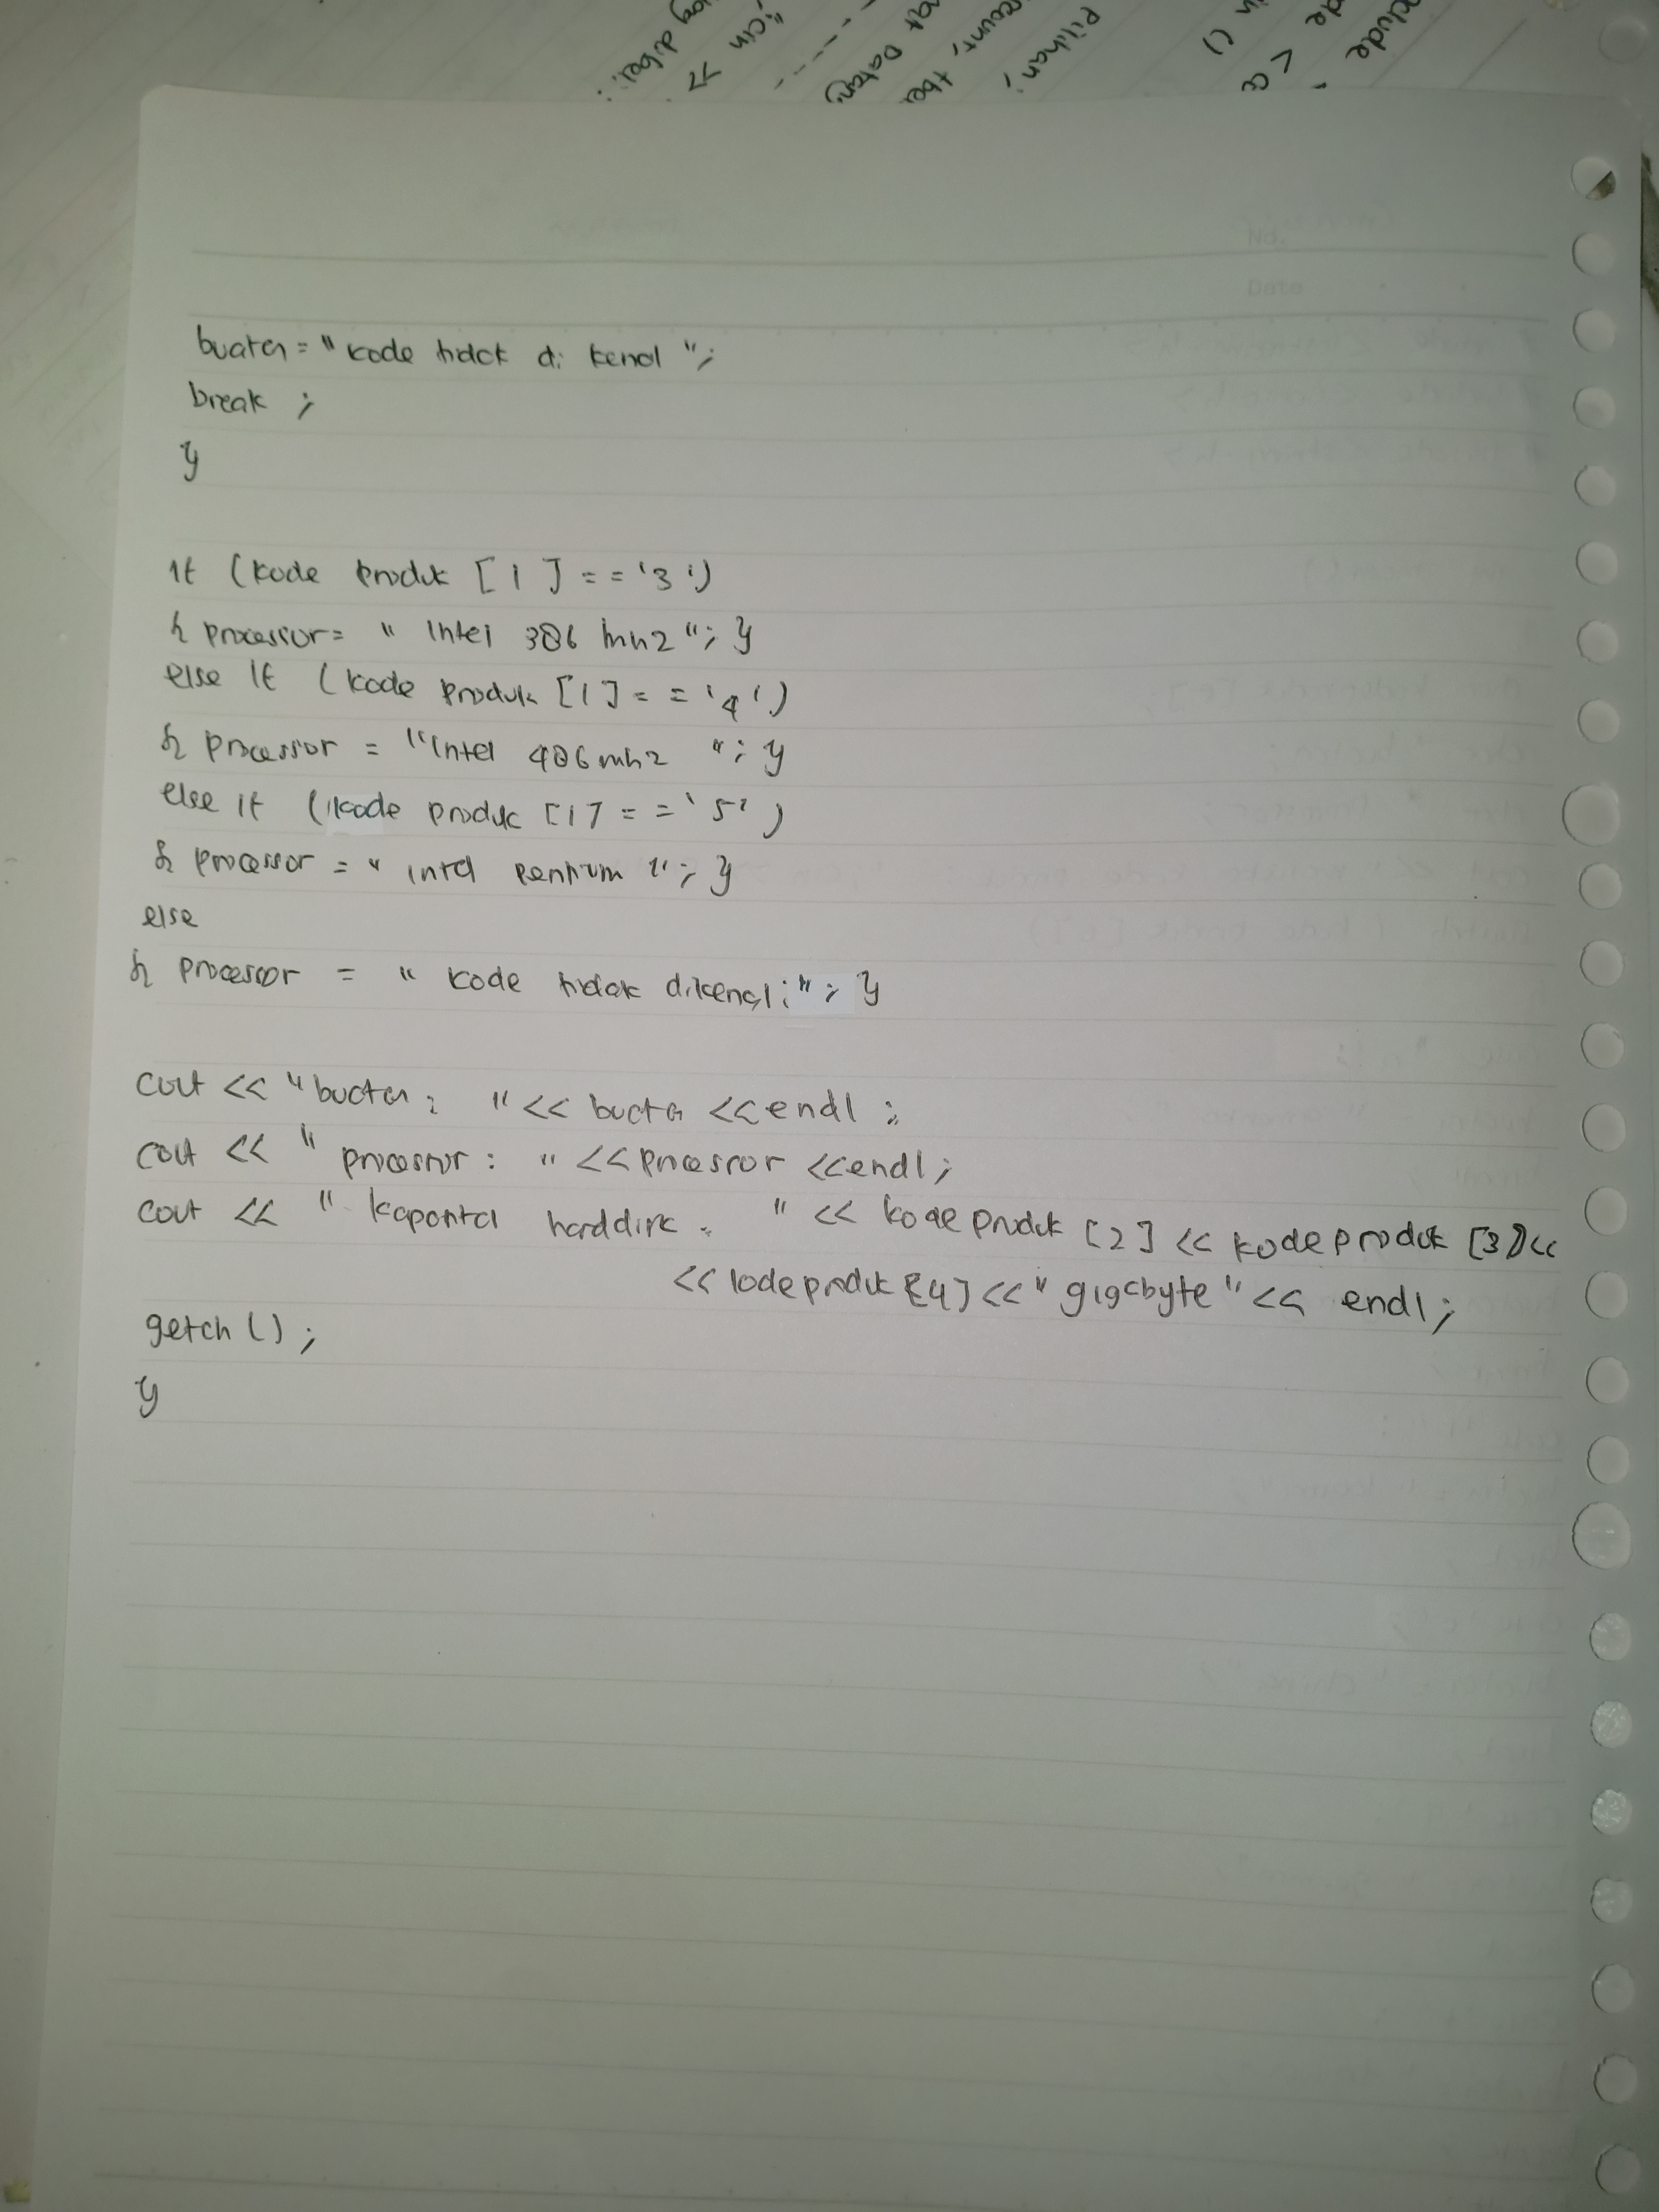 clude
de < co
in ()
Pilihan;
count, tbe
----
"cin >>
dibeli :
buatan = " kode tidak di kenal ";
break ;
}
if (kode produk [1] == '3')
{ processor = " Intel 386 mhz "; }
else if (kode produk [1] == '4')
{ processor = "Intel 486 mhz "; }
else if (kode produk [1] == '5')
{ processor = " intel pentium "; }
else
{ processor = " kode tidak dikenali "; }
cout << "buatan : " << buatan << endl ;
cout << " processor : " << processor << endl ;
cout << " kapasital harddisk : " << kode produk [2] << kode produk [3] <<
<< kode produk [4] << " gigabyte " << endl ;
getch () ;
}